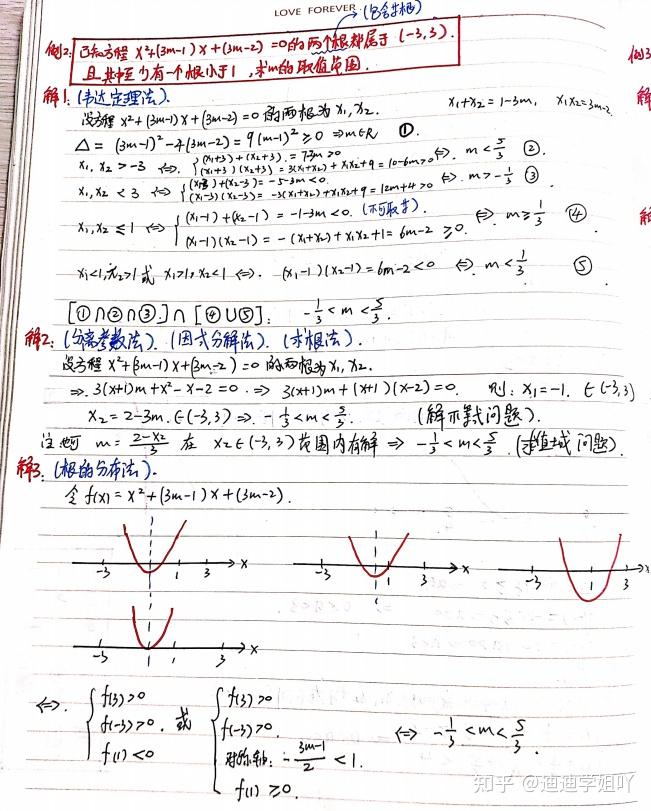 LOVE FOREVER
(包含等根)
例2: 已知方程 x²+(3m-1)x+(3m-2)=0的两个根都属于(-3,3).
且其中至少有一个根小于1,求m的取值范围.
例3
解1:(韦达定理法).
设方程 x²+(3m-1)x+(3m-2)=0 的两根为x₁,x₂. x₁+x₂=1-3m, x₁x₂=3m-2
Δ=(3m-1)²-4(3m-2)=9(m-1)²≥0 ⇒m∈R ①.
x₁,x₂>-3 ⇔ {(x₁+3)+(x₂+3)=7-3m>0
(x₁+3)(x₂+3)=3(x₁+x₂)+x₁x₂+9=10-6m>0 ⇔. m<5/3 ②.
x₁,x₂<3 ⇔ {(x₁-3)+(x₂-3)=-5-3m<0.
(x₁-3)(x₂-3)=-3(x₁+x₂)+x₁x₂+9=12m+4>0 ⇔. m>-1/3 ③
x₁,x₂≤1 ⇔ {(x₁-1)+(x₂-1)=-1-3m<0. (不可取等).
(x₁-1)(x₂-1)=-(x₁+x₂)+x₁x₂+1=6m-2≥0. ⇔ m≥1/3 ④
x₁<1,x₂>1 或 x₁>1,x₂<1 ⇔. (x₁-1)(x₂-1)=6m-2<0 ⇔ m<1/3 ⑤
[①∩②∩③]∩[④∪⑤]: -1/3<m<5/3.
解2:(分离参数法).(因式分解法).(求根法).
设方程 x²+(3m-1)x+(3m-2)=0 的两根为x₁,x₂.
⇒. 3(x+1)m+x²-x-2=0. ⇒ 3(x+1)m+(x+1)(x-2)=0. 则: x₁=-1. ∈(-3,3)
x₂=2-3m.∈(-3,3)⇒ -1/3<m<5/3. (解不等式问题).
m=(2-x₂)/3 在 x₂∈(-3,3)范围内有解 ⇒ -1/3<m<5/3. (求值域问题).
解3:(根的分布法).
令 f(x)=x²+(3m-1)x+(3m-2).
-3 1 3 x
-3 1 3 x
-3 1 3 x
-3 1 3 x
⇔. {f(3)>0
f(-3)>0.
f(1)<0
或 {f(3)>0
f(-3)>0.
对称轴: -(3m-1)/2<1.
f(1)≥0.
⇔ -1/3<m<5/3.
知乎 @迪迪学姐吖